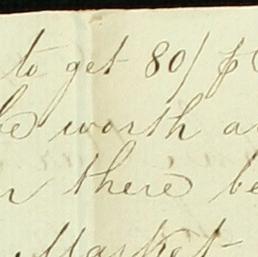 to get 80/ p
be worth a
there be
Market